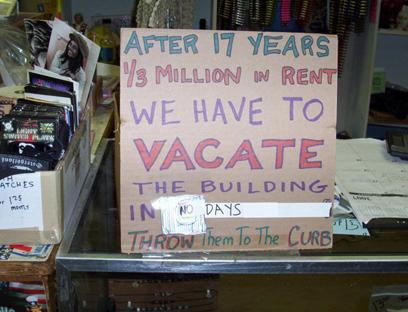 AFTER 17 YEARS
1/3 MILLION IN RENT
WE HAVE TO
VACATE
THE BUILDING
IN NO DAYS
THROW Them To The CURB
LIGHT
SWITCH PLATE